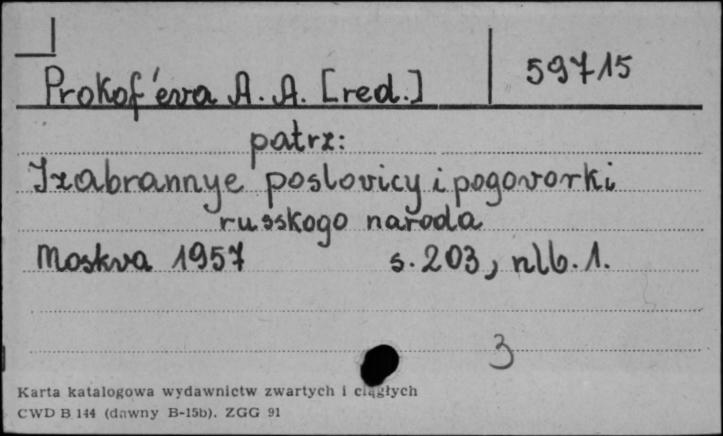 Prokof'eva A. A. [red.] 59715
patrz:
Izabrannye poslovicy i pogovorki
russkogo naroda
Moskva 1957 s. 203, nlb. 1.
3
Karta katalogowa wydawnictw zwartych i ciągłych
CWD B 144 (dawny B-15b). ZGG 91